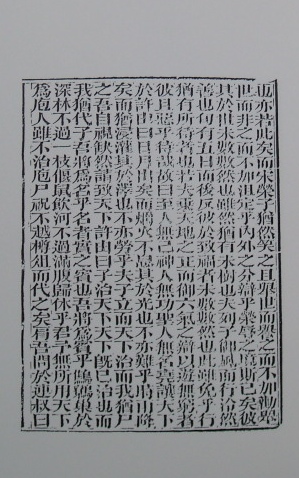 也亦若此矣而宋榮子猶然笑之且舉世而譽之而不加勸舉
世而非之而不加沮定乎內外之分辯乎榮辱之境斯已矣彼
其於世未數數然也雖然猶有未樹也夫列子御風而行泠然
善也旬有五日而後反彼於致福者未數數然也此雖免乎行
猶有所待者也若夫乘天地之正而御六氣之辯以遊無窮者
彼且惡乎待哉故曰至人無己神人無功聖人無名堯讓天下
於許由曰日月出矣而爝火不息其於光也不亦難乎時雨降
矣而猶浸灌其於澤也不亦勞乎夫子立而天下治而我猶尸
之吾自視缺然請致天下許由曰子治天下天下既已治也而
我猶代子吾將爲名乎名者實之賓也吾將爲賓乎鷦鷯巢於
深林不過一枝偃鼠飲河不過滿腹歸休乎君予無所用天下
爲庖人雖不治庖尸祝不越樽俎而代之矣肩吾問於連叔曰